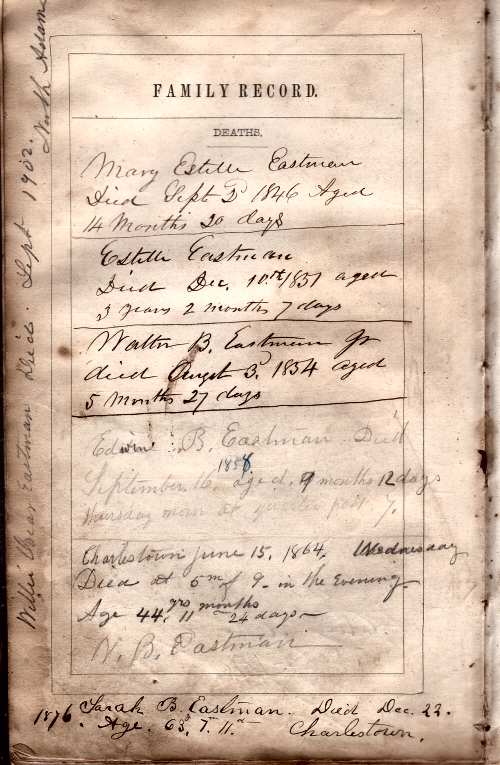 FAMILY RECORD.
DEATHS.
Mary Estelle Eastman
Died Sept 2d 1846 Aged
14 Months 20 days
Estelle Eastman
Died Dec. 10th 1851 aged
3 years 2 months 7 days
Walter B. Eastman Jr
died Augst 3d. 1854 aged
5 Months 27 days
Edwin B. Eastman Died
1858
September 16 aged 9 months 12 days
Thursday morn at quarter past 7.
Charlestown June 15, 1864. Wednesday
Died at 5m of 9. in the Evening
Age 44 yrs 11 months 24 days
B. Eastman
1876 Sarah B. Eastman. Died Dec. 22.
Age. 63. 7. 11. Charlestown.
Willie Oscar Eastman Died. Sept 1902.
North Adams